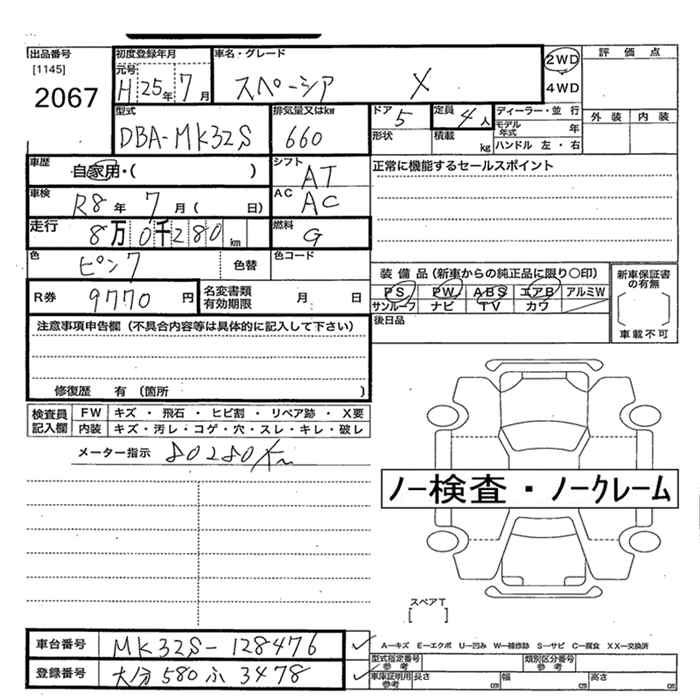 出品番号
[1145]
2067
初度登録年月
元号
H 25年 7月
車名・グレード
スペーシア X
2WD
4WD
評価点
外装 内装
型式
DBA-MK32S
排気量又はkw
660
ドア
5
形状
定員
4人
積載
kg
ディーラー・並行
モデル年式 年
ハンドル 左・右
車歴
自家用・( )
シフト
AT
正常に機能するセールスポイント
車検
R8年 7月( 日)
AC
AC
走行
8万0千280km
燃料
G
色
ピンク
色替
色コード
R券
9770円
名変書類有効期限 月 日
装備品(新車からの純正品に限り○印)
PS PW ABS エアB アルミW
サンルーフ ナビ TV カワ
後日品
新車保証書の有無
車載不可
注意事項申告欄(不具合内容等は具体的に記入して下さい)
修復歴 有(箇所 )
検査員記入欄
FW キズ・飛石・ヒビ割・リペア跡・X要
内装 キズ・汚レ・コゲ・穴・スレ・キレ・破レ
メーター指示 80280Km
ノー検査・ノークレーム
スペアT
[ ]
A―キズ E―エクボ U―凹み W―補修跡 S―サビ C―腐食 XX―交換済
車台番号 MK32S-128476
登録番号 大分 580 ふ 3478
型式指定番号参考
類別区分番号参考
車庫証明用参考 長さ cm 幅 cm 高さ cm